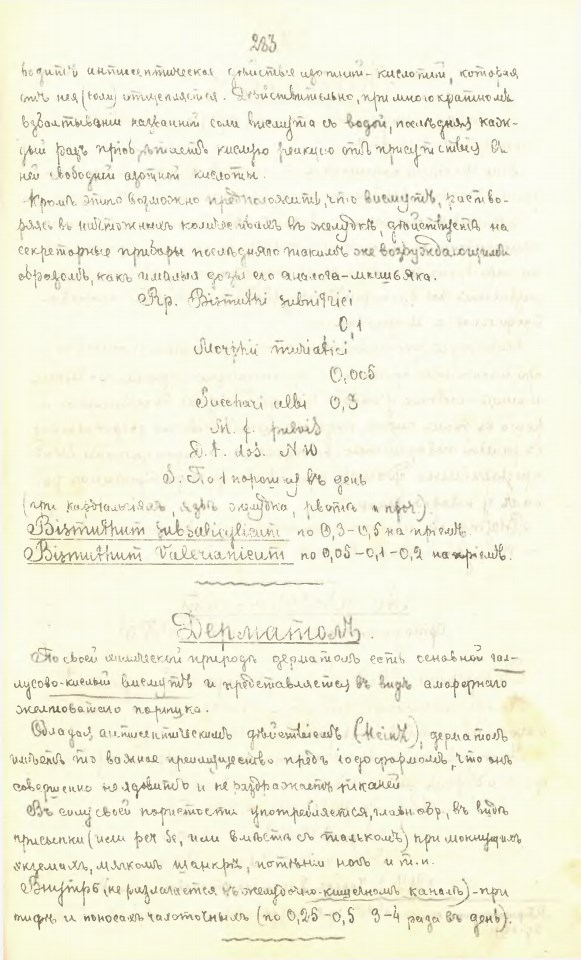 283
водитъ антисептическое дѣйствіе азотной-кислотой, которая
отъ нея (соли) отщепляется. Дѣйствительно, при многократномъ
взбалтываніи названной соли висмута съ водой, послѣдняя каж-
дый разъ пріобрѣтаетъ кислую реакцію отъ присутствія въ
ней свободной азотной кислоты.
Кромѣ этого возможно предположить, что висмутъ, раство-
ряясь въ ничтожныхъ количествахъ въ желудкѣ, дѣйствуетъ на
секреторные приборы послѣдняго такимъ же возбуждающимъ
образомъ, какъ и малыя дозы его аналога-мышьяка.
Rp. Bismuthi subnitrici
0,1
Morphii muriatici
0,005
Sacchari albi 0,3
M. f. pulvis
D. t. dos. N 10
S. По 1 порошку въ день
(при кардіалгіяхъ, язвѣ желудка, рвотѣ и проч.).
Bismuthum subsalicylicum по 0,3-0,5 на пріемъ.
Bismuthum Valerianicum по 0,05-0,1-0,2 на пріемъ.
Дерматолъ.
По своей химической природѣ дерматолъ есть основной гал-
лусово-кислый висмутъ и представляется въ видѣ аморфнаго
желтоватаго порошка.
Обладая антисептическимъ дѣйствіемъ (Heinz), дерматолъ
имѣетъ то важное преимущество предъ іодоформомъ, что онъ
совершенно не ядовитъ и не раздражаетъ тканей
Въ силу своей пористости употребляется, главн обр, въ видѣ
присыпки (или per se, или вмѣстѣ съ талькомъ) при мокнущихъ
экземахъ, мягкомъ шанкрѣ, потѣніи ногъ и т. п.
Внутрь (не разлагается въ желудочно-кишечномъ каналѣ)-при
тифѣ и поносахъ чахоточныхъ (по 0,25-0,5 3-4 раза въ день).